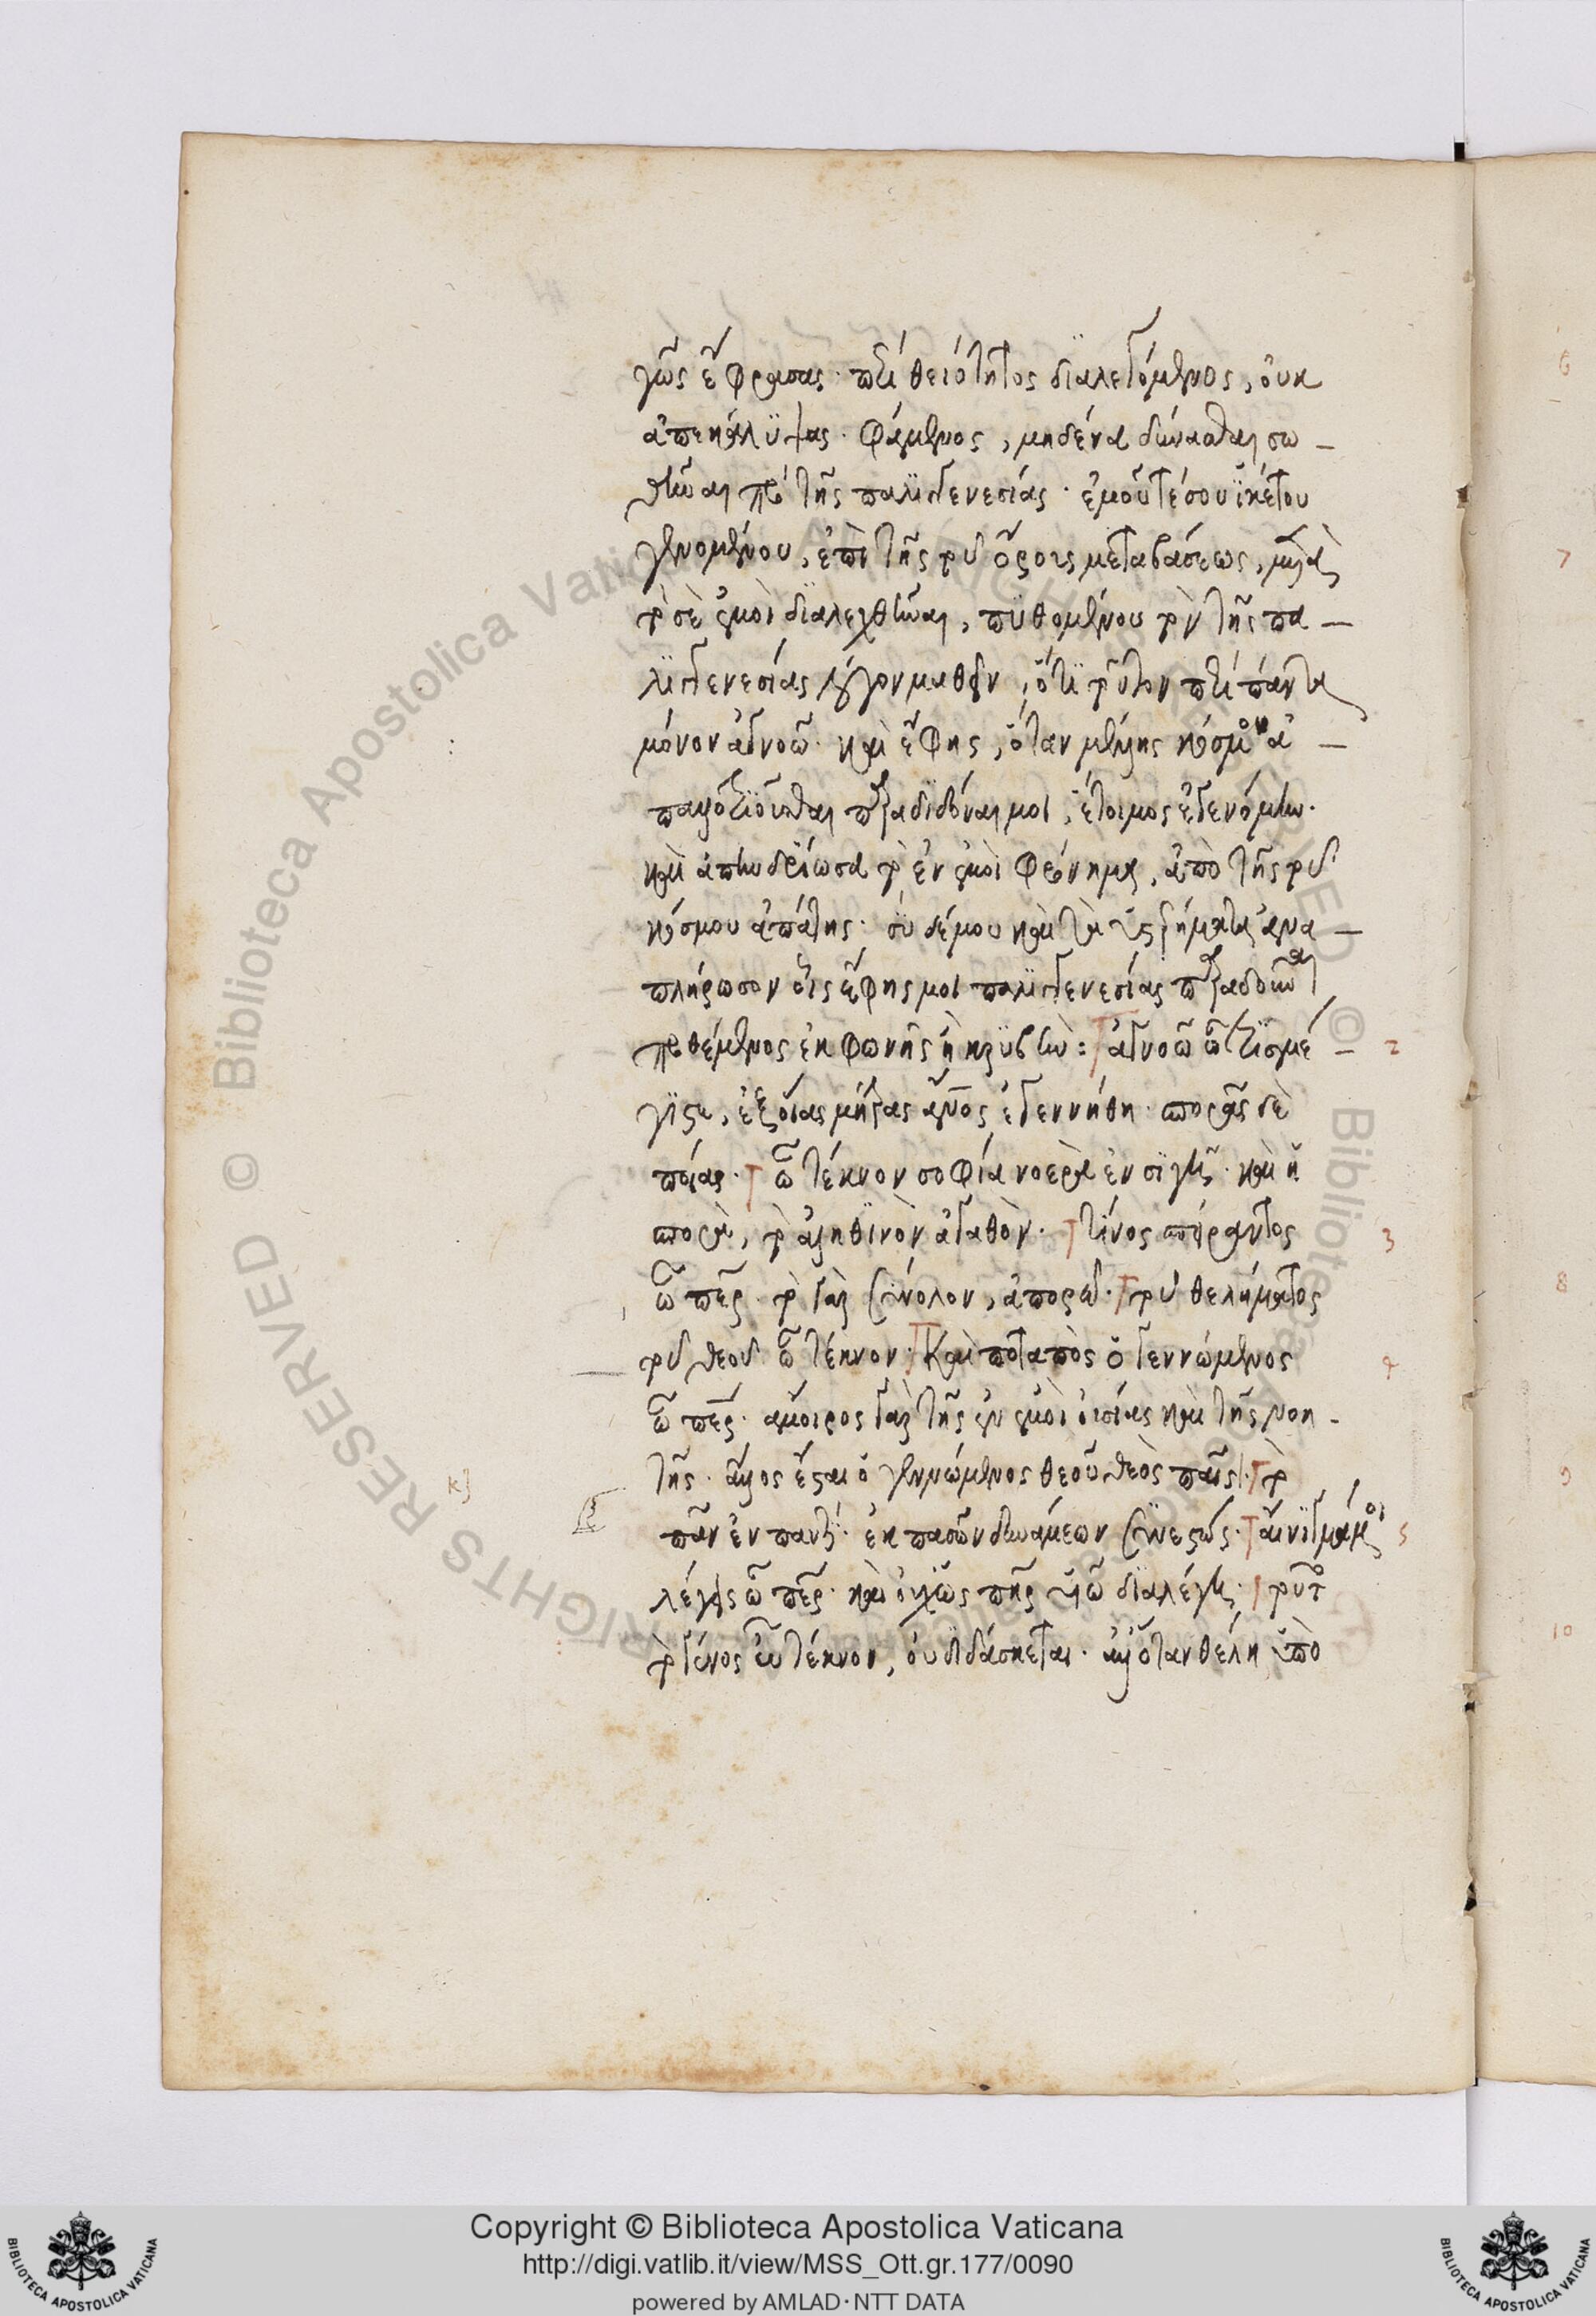 γῶς ἔφρασας· περὶ θειότητος διαλεγόμενος, οὐκ
ἀπεκάλυψας· φάμενος, μηδένα δύνασθαι σω-
θῆναι πρὸ τῆς παλιγγενεσίας· ἐμοῦ τέ σου ἱκέτου
γενομένου, ἐπὶ τῆς τοῦ ὄρους μεταβάσεως, μετὰ
τὸ σὲ ἐμοὶ διαλεχθῆναι, πυθομένου τὸν τῆς πα-
λιγγενεσίας λόγον μαθεῖν, ὅτι τοῦτον περὶ πάντα
μόνον ἀγνοῶ· καὶ ἔφης, ὅταν μέλλῃς κόσμου ἀ-
παλλοτριοῦσθαι παραδιδόναι μοι, ἕτοιμος ἐγενόμην·
καὶ ἀπηνδρείωσα τὸ ἐν ἐμοὶ φρόνημα, ἀπὸ τῆς τοῦ
κόσμου ἀπάτης· σὺ δέ μου καὶ τὰ ὑστερήματα ἀνα-
πλήρωσον οἷς ἔφης μοι παλιγγενεσίας παραδοῦναι
προθέμενος ἐκ φωνῆς ἢ κρυβήν: ἀγνοῶ ὦ τρισμέ- 2
γιστε, ἐξ οἵας μήτρας ἄνος ἐγεννήθη· σπορᾶς δὲ
ποίας· ὦ τέκνον σοφία νοερὰ ἐν σιγῇ· καὶ ἡ
σπορὰ, τὸ ἀληθινὸν ἀγαθὸν· τίνος σπείραντος 3
ὦ περ· τὸ γὰρ σύνολον, ἀπορῶ· τοῦ θελήματος
τοῦ θεοῦ ὦ τέκνον· Καὶ ποταπὸς ὁ γεννώμενος 4
ὦ περ· ἄμοιρος γὰρ τῆς ἐν ἐμοὶ οὐσίας καὶ τῆς νοη-
τῆς· ἄλλος ἔσται ὁ γεννώμενος θεοῦ θεὸς παῖς· τὸ
πᾶν ἐν παντί· ἐκ πασῶν δυνάμεων συνεστώς· αἴνιγμά μοι 5
λέγεις ὦ περ· καὶ οὐχ ὡς πὴρ υἱῷ διαλέγῃ· τοῦτο
τὸ γένος ὦ τέκνον, οὐ διδάσκεται· ἀλλ' ὅταν θέλῃ ὑπὸ
k]
6
7
8
9
10
© Biblioteca Apostolica Vaticana ALL RIGHTS RESERVED
BIBLIOTECA APOSTOLICA VATICANA
Copyright © Biblioteca Apostolica Vaticana
http://digi.vatlib.it/view/MSS_Ott.gr.177/0090
powered by AMLAD·NTT DATA
BIBLIOTECA APOSTOLICA VATICANA